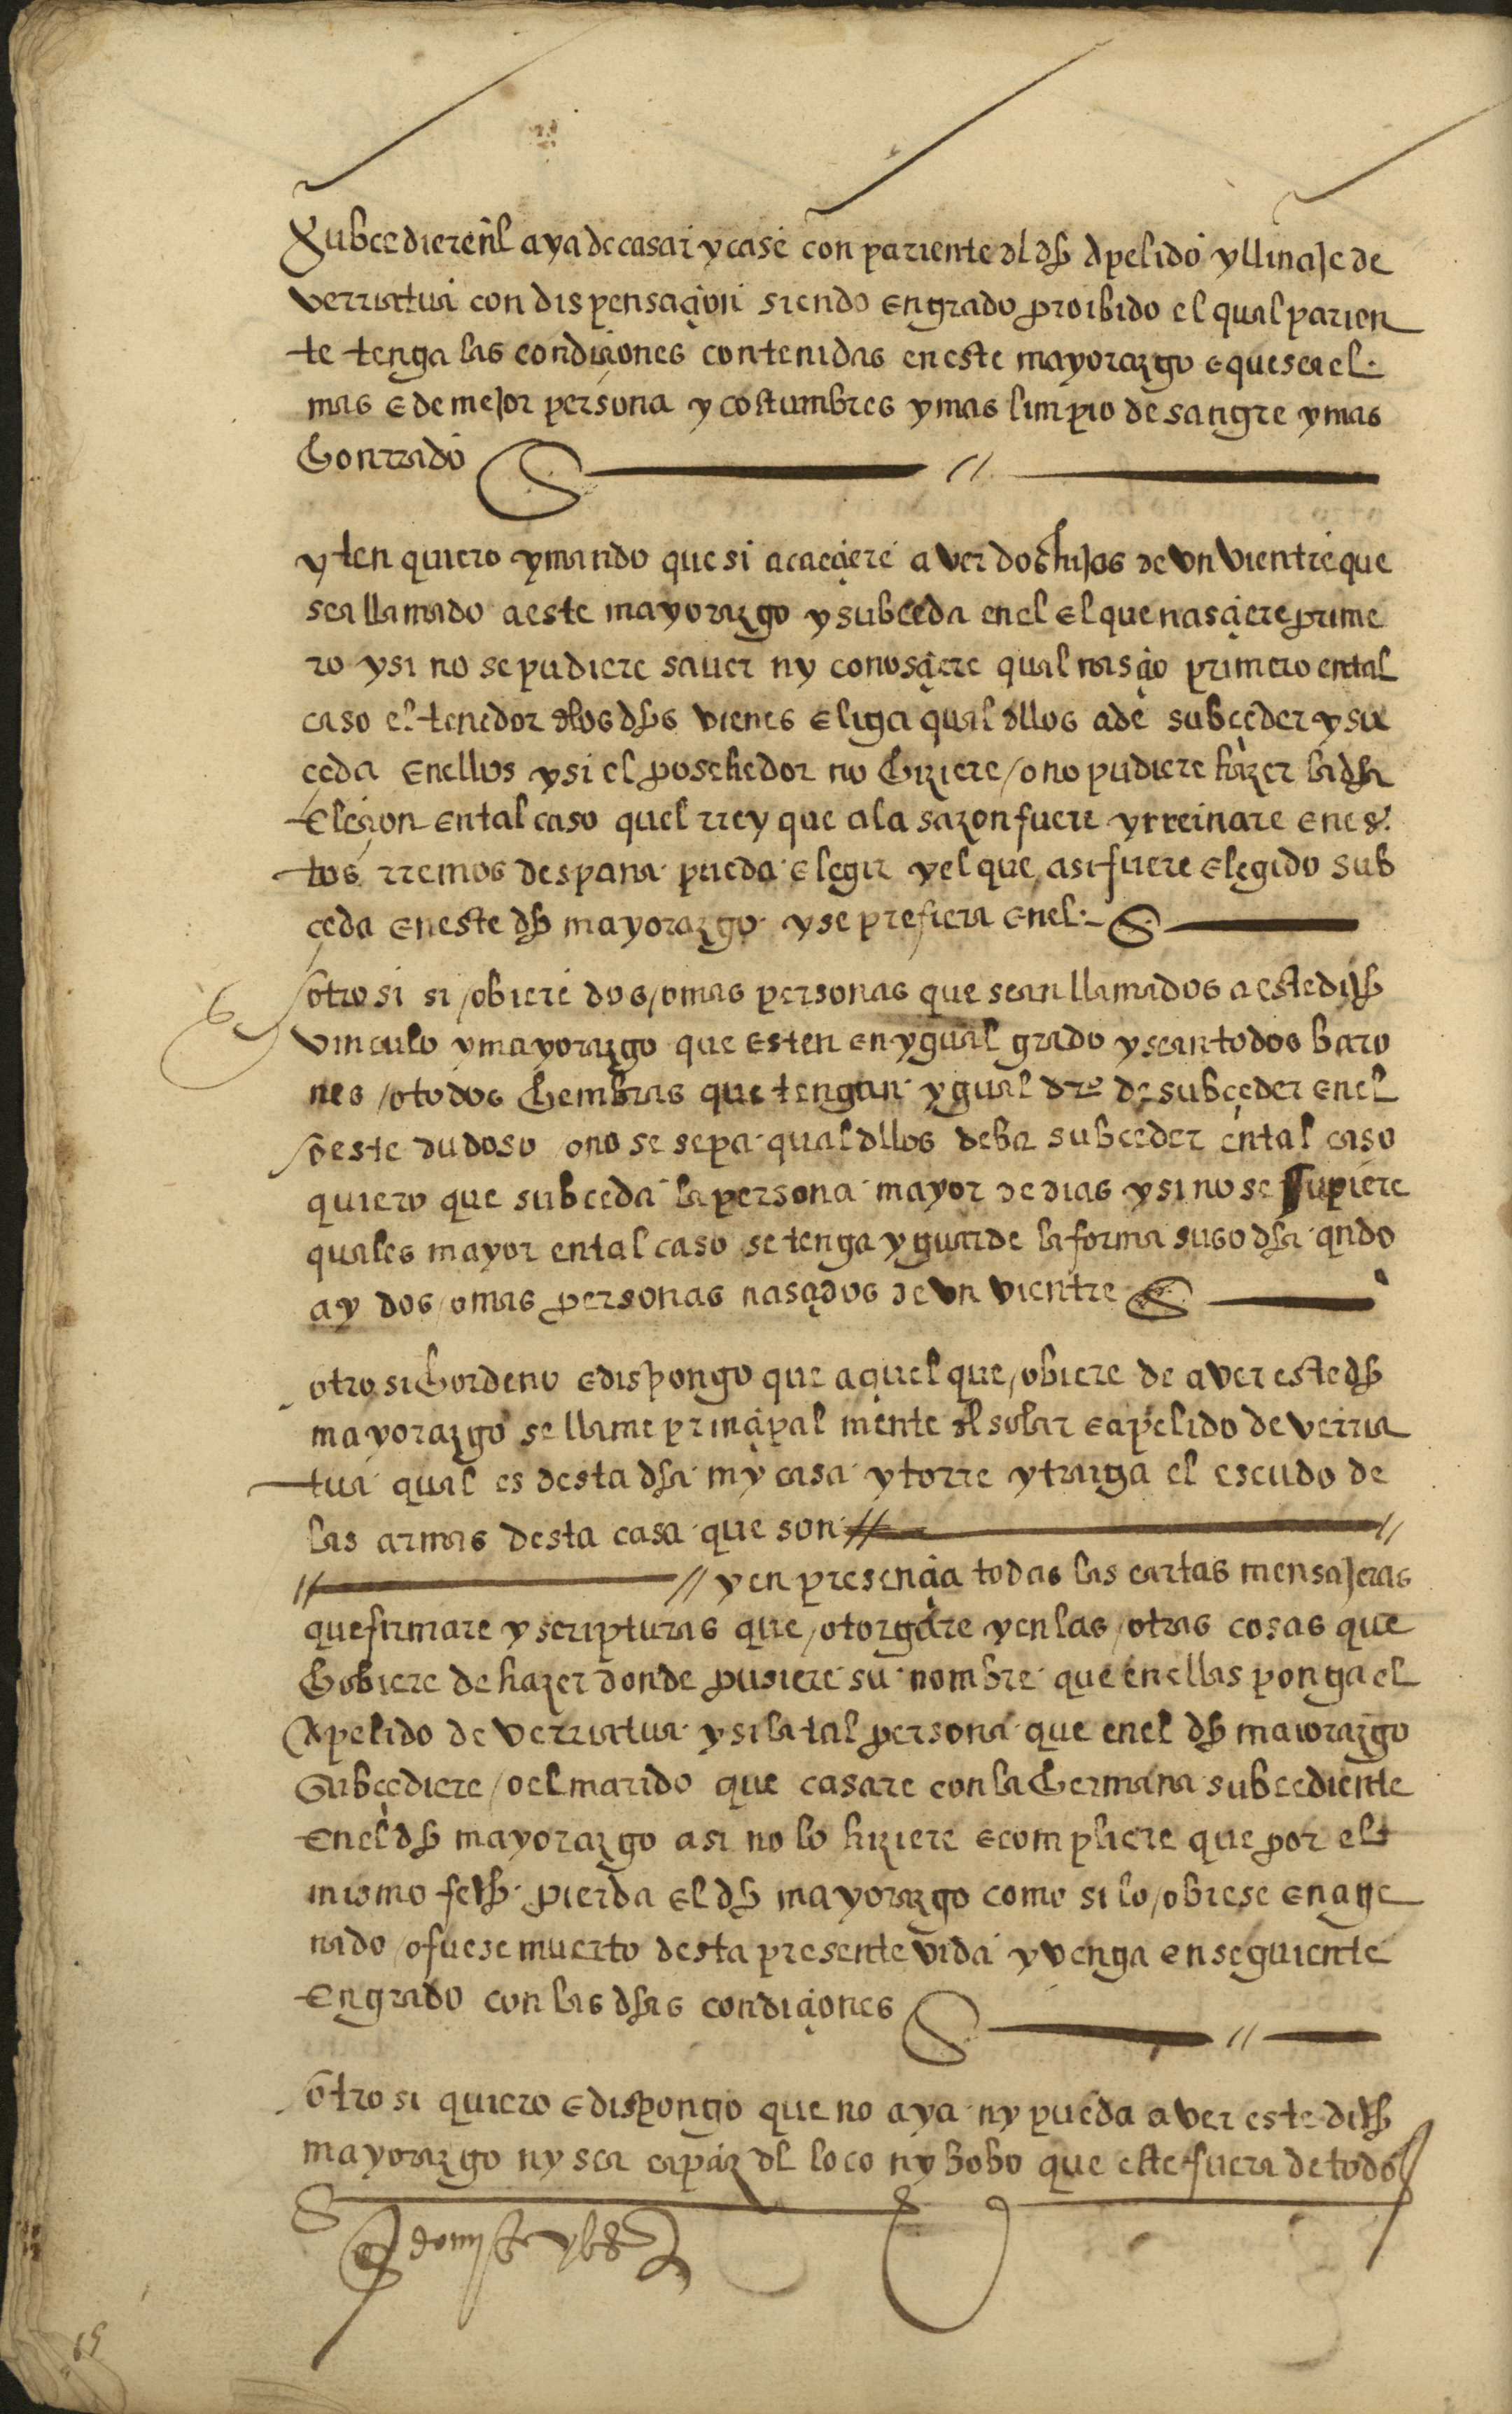 Subcediere nl aya de casar y case con pariente dl dho Apelido y llinaje de
verriatua con dispensaçion siendo en grado proibido el qual parien
te tenga las condiçiones contenidas en este mayorazgo e que sea el
mas e de mejor persona y costumbres y mas limpio de sangre y mas
honrrado
yten quiero y mando que si acaeçiere aver dos hijos de un vientre que
sea llamado a este mayorazgo y subceda en el El que nasçiere prime
ro y si no se pudiere saver ny conosçiere qual nasçio primero en tal
caso el tenedor dlos dhos vienes eliga qual dllos a de subçeder y su
ceda En ellos y si el posehedor no hiziere / o no pudiere hazer la dha
Eleçion En tal caso quel rrey que a la sazon fuere y rreinare En es
tos rreinos despana pueda elegir y el que asi fuere elegido sub
ceda En este dho mayorazgo y se prefiera En el
otrosi si / obiere dos / o mas personas que sean llamados a este dicho
vinculo y mayorazgo que esten en ygual grado y sean todos baro
nes / o todos hembras que tengan ygual dro de subçeder En el
o este dudoso o no se sepa qual dllos deba subceder en tal caso
quiero que subceda la persona mayor de dias y si no se supiere
qual es mayor en tal caso se tenga y guarde la forma suso dha qndo
ay dos / o mas personas nasçidos de un vientre
otrosi hordeno e dispongo que aquel que / obiere de aver este dho
mayorazgo se llame prinçipal mente dl solar e apelido de verria
tua qual es desta dha my casa y torre y traiga el escudo de
las armas desta casa que son //
// y en presençia todas las cartas mensajeras
que firmare y scripturas que / otorgare y en las / otras cosas que
hobiere de hazer donde pusiere su nombre que en ellas ponga el
Apelido de verriatua y si la tal persona que en el dho maiorazgo
Subçediere / o el marido que casare con la hermana subcediente
En el dho mayorazgo asi no lo hiziere e compliere que por el
mismo fecho pierda El dho mayorazgo como si lo / obiese Enaje
nado / o fuese muerto desta presente vida y venga en seguiente
En grado con las dhas condiçiones
otro si quiero e dispongo que no aya ny pueda aver este dicho
mayorazgo ny sea capaz dl loco ny bobo que este fuera de todo